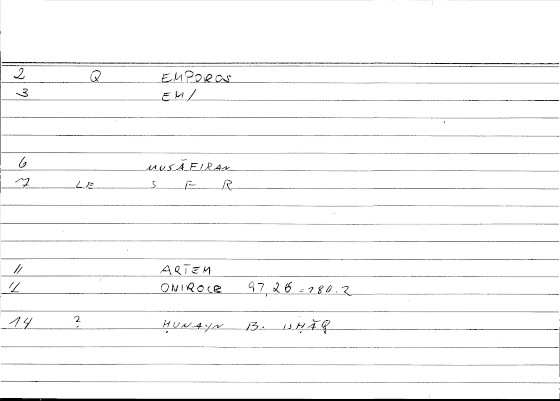 2 Q EMPOROS
3 EM/
6 MUSĀFIRAN
7 LE S F R
11 ARTEM
12 ONIROCR 97,26 = 180.2
14 ? ḤUNAYN B. ISḤĀQ